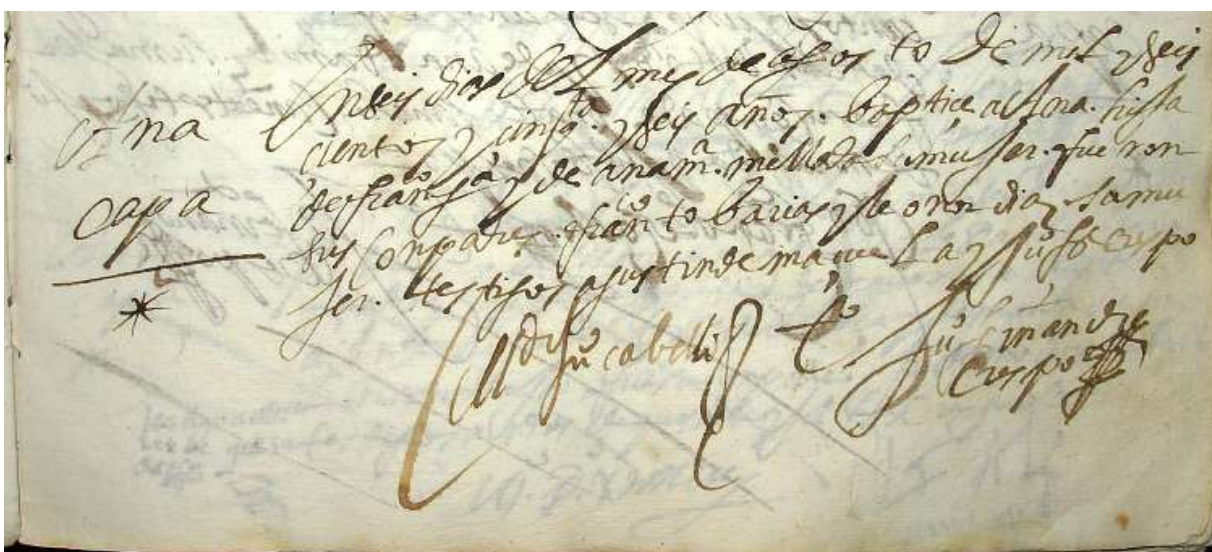 Ana
Capa
En seis dias del mes de agosto de mil y seis
cientos y cinq.ta y seis años. baptice a Ana. hija
de fran.co y de ana m.a mellado su muger. fueron
sus Compadres. fran.co to barias y leonor diaz su mu
jer. testigos agustin de y Ju.o fr.z crespo
Ju.o cabello
Ju.o
crespo